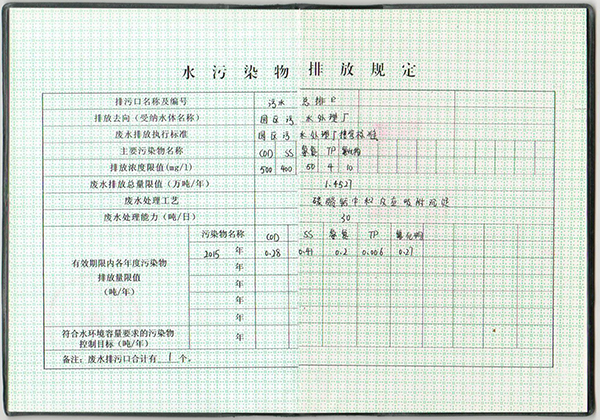 水污染物排放规定
排污口名称及编号 污水总排口
排放去向（受纳水体名称） 园区污水处理厂
废水排放执行标准 园区污水处理厂接管标准
主要污染物名称 COD SS 氨氮 TP 氟化物
排放浓度限值(mg/l) 500 400 50 4 10
废水排放总量限值（万吨/年） 1.4527
废水处理工艺
废水处理能力（吨/日） 30
污染物名称 COD SS 氨氮 TP 氟化物
有效期限内各年度污染物排放量限值（吨/年） 2015 年 0.28 0.41 0.2 0.006 0.27
年
年
年
年
符合水环境容量要求的污染物控制目标（吨/年） 年
备注：废水排污口合计有 1 个。